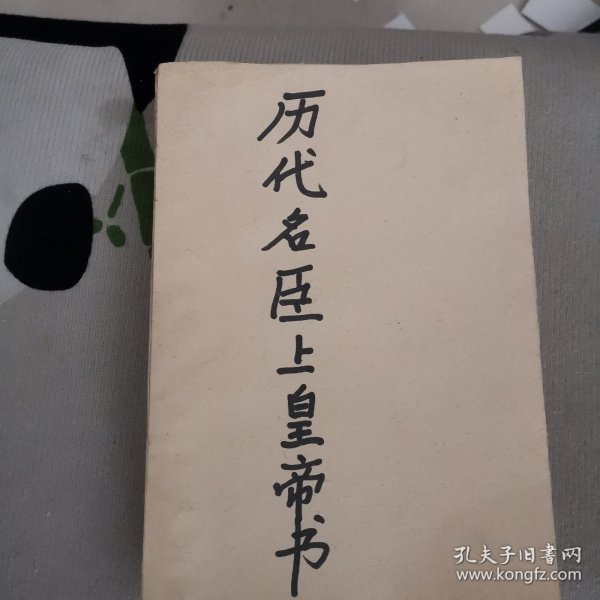 历代名臣上皇帝书
孔夫子旧书网
www.kongfz.com